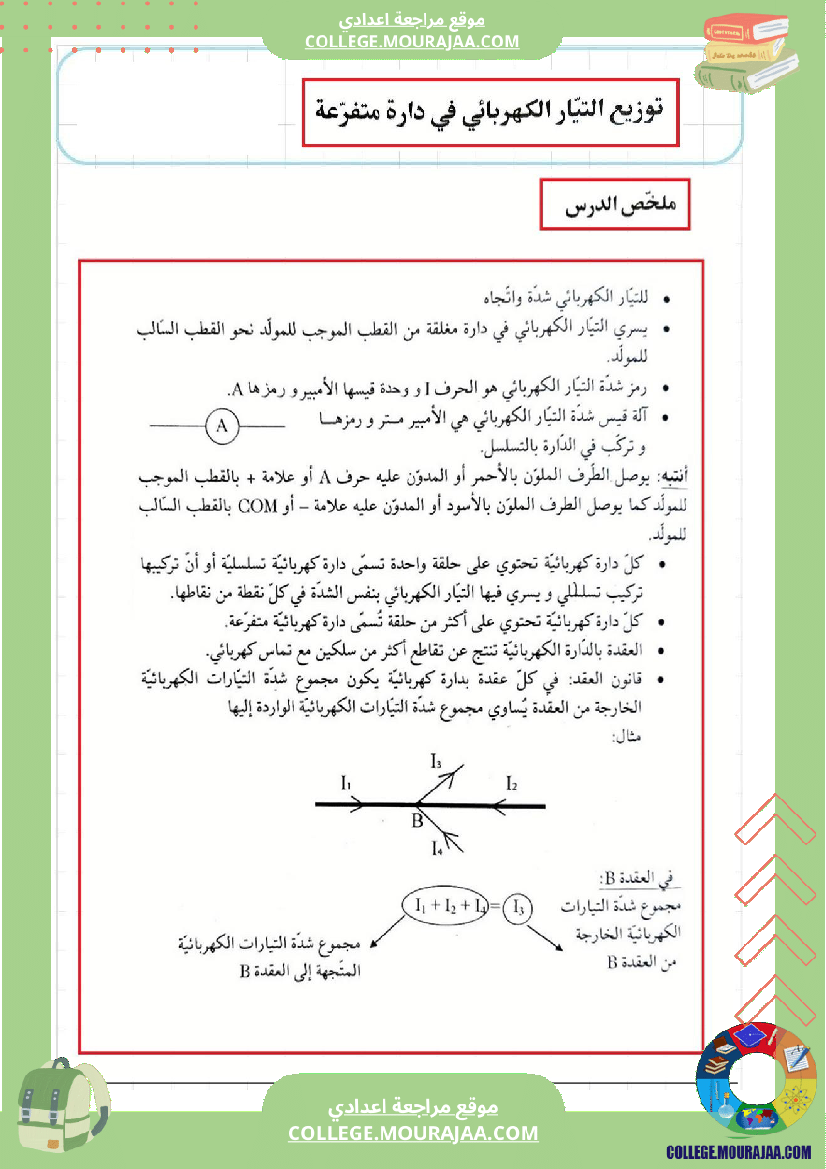 موقع مراجعة اعدادي
COLLEGE.MOURAJAA.COM
توزيع التيّار الكهربائي في دارة متفرّعة
ملخّص الدرس
• للتيّار الكهربائي شدّة واتّجاه
• يسري التيّار الكهربائي في دارة مغلقة من القطب الموجب للمولّد نحو القطب السّالب
للمولّد.
• رمز شدّة التيّار الكهربائي هو الحرف I و وحدة قيسها الأمبير و رمزها A.
• آلة قيس شدّة التيّار الكهربائي هي الأمبير متر و رمزها
A
و تركّب في الدّارة بالتسلسل.
أنتبه: يوصل الطّرف الملوّن بالأحمر أو المدوّن عليه حرف A أو علامة + بالقطب الموجب
للمولّد كما يوصل الطرف الملوّن بالأسود أو المدوّن عليه علامة – أو COM بالقطب السّالب
للمولّد.
• كلّ دارة كهربائيّة تحتوي على حلقة واحدة تسمّى دارة كهربائيّة تسلسليّة أو أنّ تركيبها
تركيب تسلسلي و يسري فيها التيّار الكهربائي بنفس الشدّة في كلّ نقطة من نقاطها.
• كلّ دارة كهربائيّة تحتوي على أكثر من حلقة تُسمّى دارة كهربائيّة متفرّعة.
• العقدة بالدّارة الكهربائيّة تنتج عن تقاطع أكثر من سلكين مع تماس كهربائي.
• قانون العقد: في كلّ عقدة بدارة كهربائيّة يكون مجموع شدّة التيّارات الكهربائيّة
الخارجة من العقدة يُساوي مجموع شدّة التيّارات الكهربائيّة الواردة إليها
مثال:
I₃
I₁ I₂
B
I₄
في العقدة B:
I₁ + I₂ + I₄ = I₃
مجموع شدّة التيارات
الكهربائيّة الخارجة
من العقدة B
مجموع شدّة التيارات الكهربائيّة
المتّجهة إلى العقدة B
موقع مراجعة اعدادي
COLLEGE.MOURAJAA.COM
COLLEGE.MOURAJAA.COM